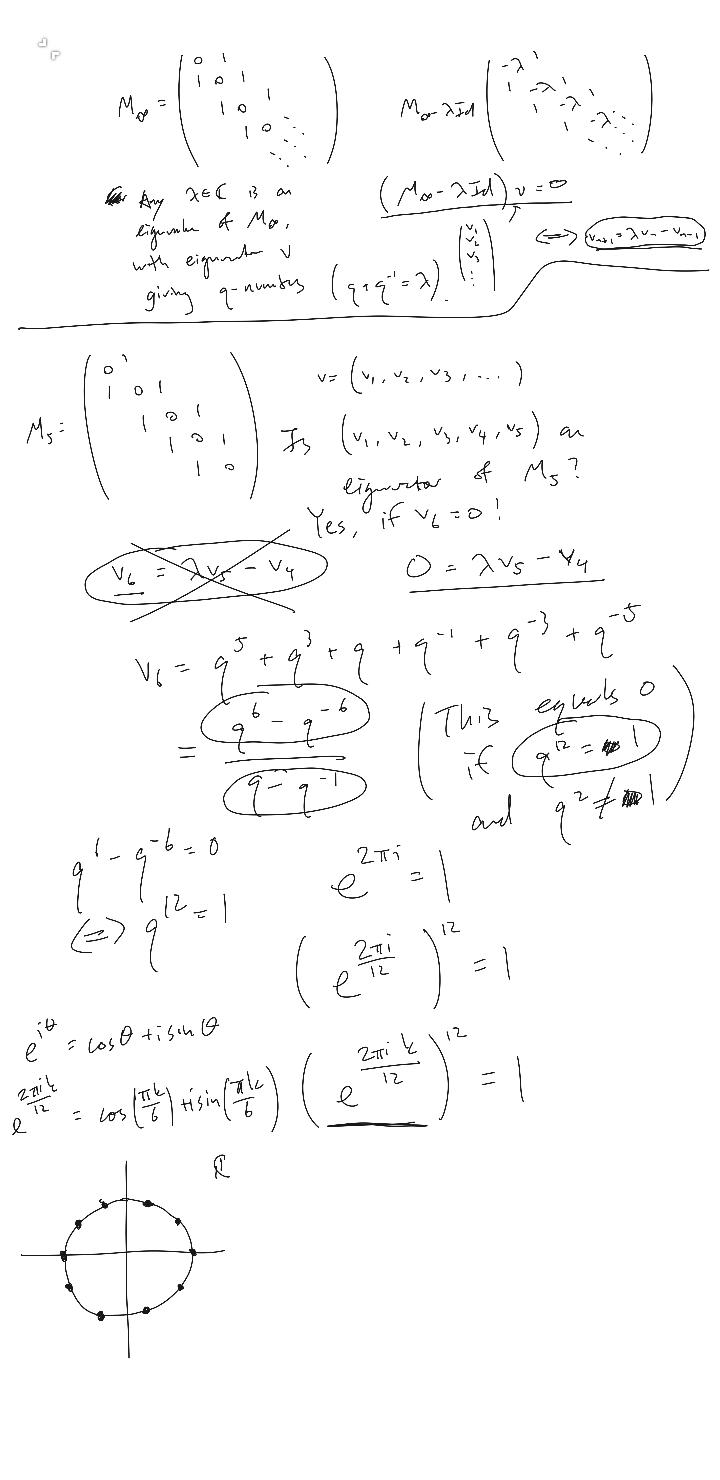 M∞ = ( 0 1 / 1 0 1 / 1 0 1 / 1 0 ⋱ )
M∞-λId ( -λ 1 / 1 -λ 1 / 1 -λ 1 / -λ ⋱ )
Any λ∈ℂ is an
eigenvalue of M∞,
with eigenvector v
giving q-numbers (q+q⁻¹=λ).
(M∞-λId) v = 0
( v₁ v₂ v₃ ⋮ )
⟺ vₙ₊₁=λvₙ-vₙ₋₁
M₅= ( 0 1 / 1 0 1 / 1 0 1 / 1 0 1 / 1 0 )
v= (v₁, v₂, v₃, ...)
Is (v₁, v₂, v₃, v₄, v₅) an
eigenvector of M₅?
Yes, if v₆=0!
v₆ = λv₅ - v₄
0 = λv₅ - v₄
v₆ = q⁵ + q³ + q + q⁻¹ + q⁻³ + q⁻⁵
= (q⁶ - q⁻⁶)/(q - q⁻¹)
(This equals 0
if q¹² = 1)
and q² ≠ 1
q⁶ - q⁻⁶ = 0
⟺ q¹² = 1
e^{2πi} = 1
(e^{2πi/12})¹² = 1
e^{iθ} = cosθ + i sinθ
e^{2πik/12} = cos(πk/6) + i sin(πk/6)
(e^{2πik/12})¹² = 1
ℂ